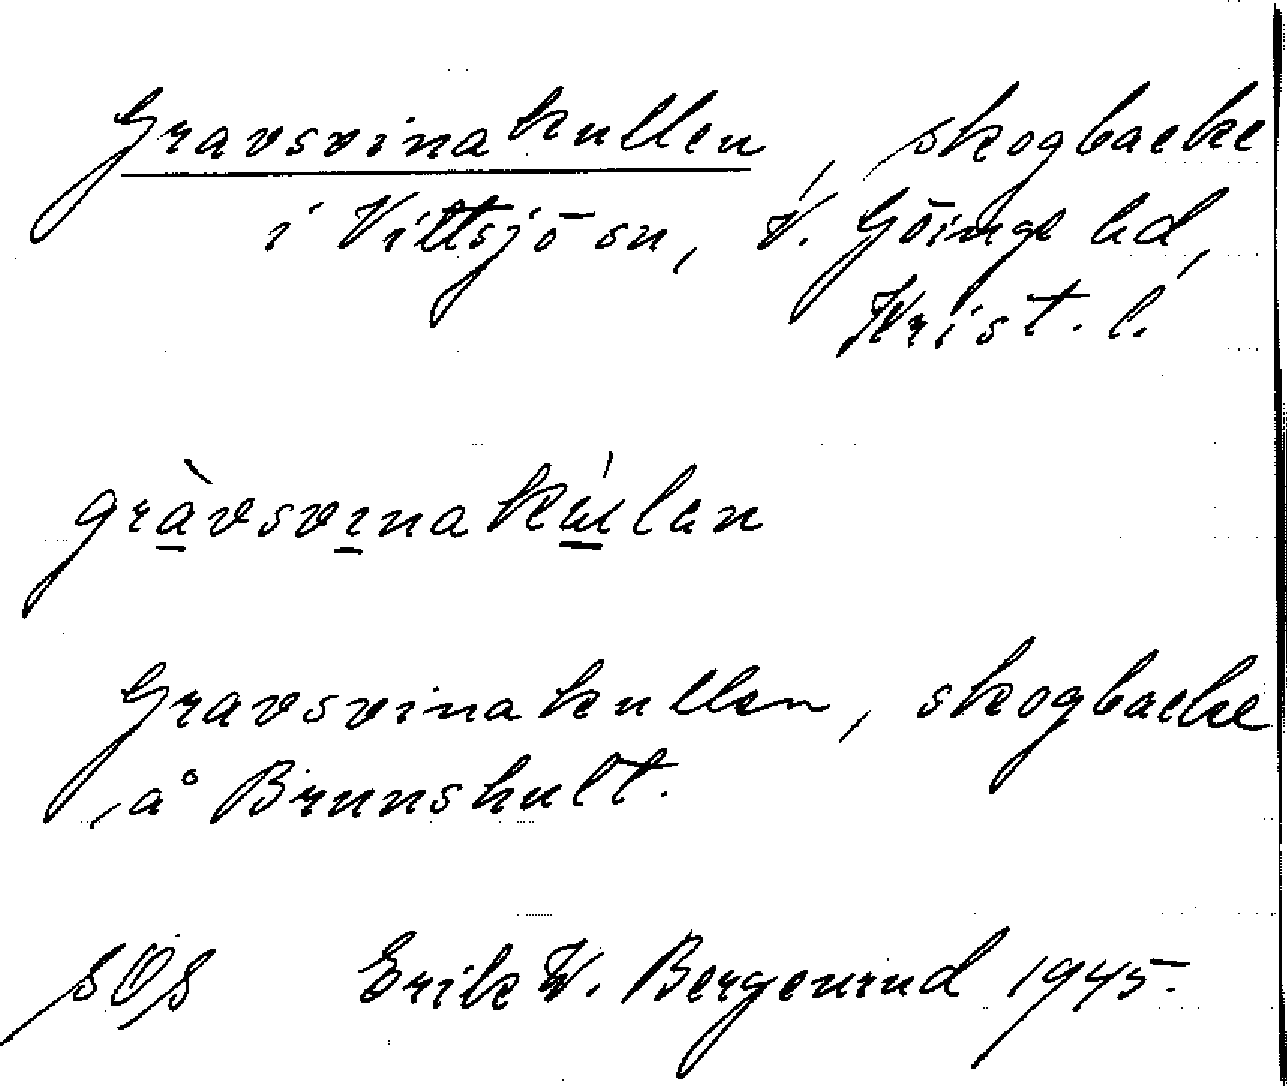 Gravsvinakullen, skogbacke
i Vittsjö sn, V. Göinge hd,
Krist. l.
gràvsvinakúlen
Gravsvinakullen, skogbacke
å Brunshult.
SOS Erik W. Bergenrud 1945.